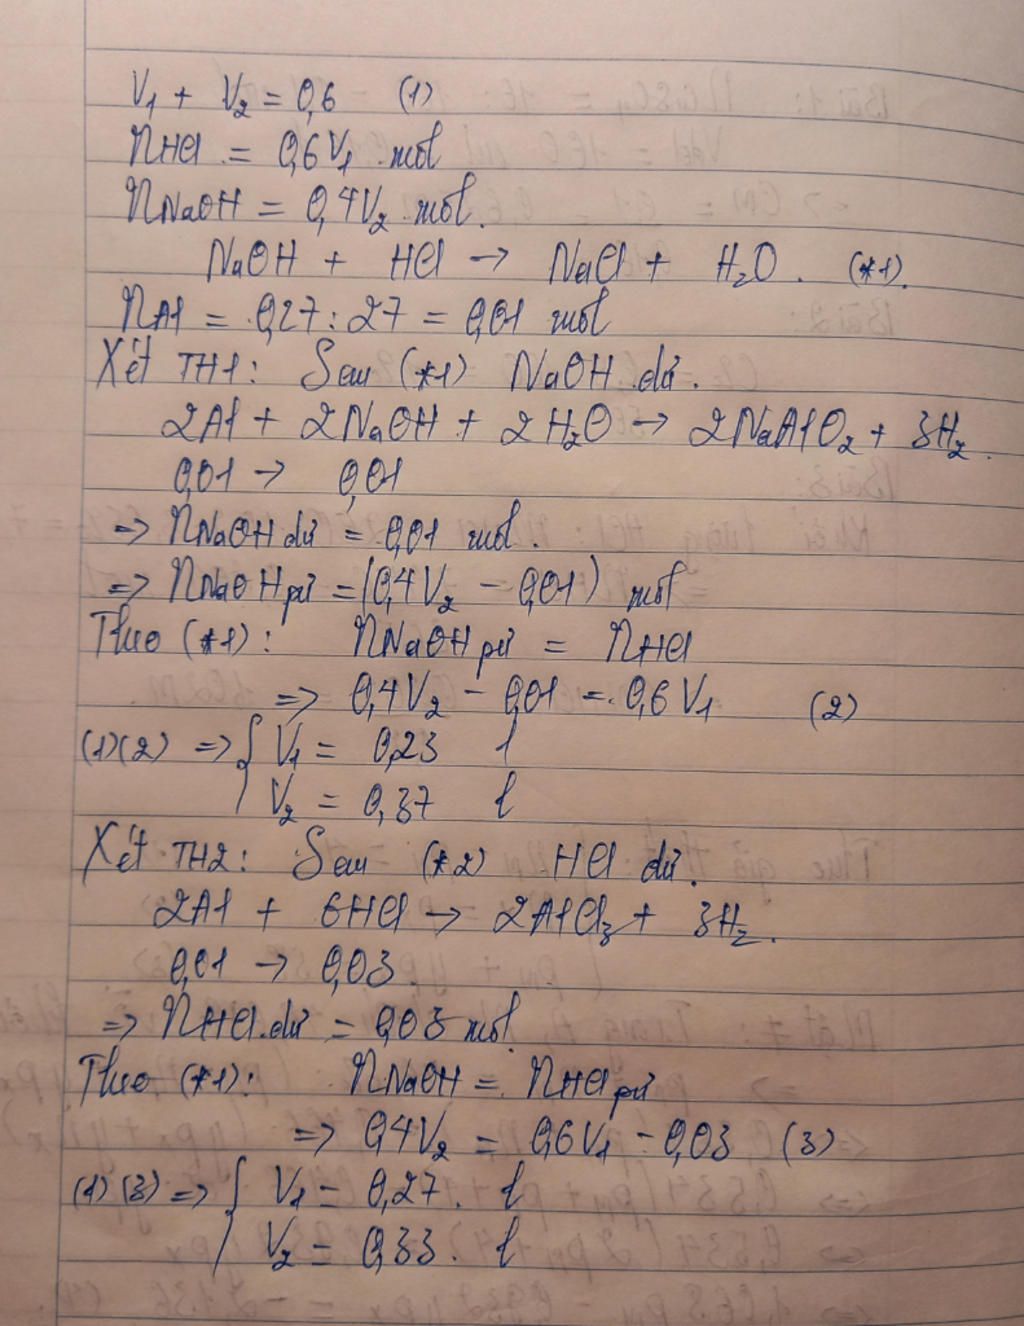 V₁ + V₂ = 0,6 (1)
nHCl = 0,6V₁ mol
nNaOH = 0,4V₂ mol.
NaOH + HCl → NaCl + H₂O. (*1).
nAl = 0,27 : 27 = 0,01 mol
Xét TH1: Sau (*1) NaOH dư.
2Al + 2NaOH + 2H₂O → 2NaAlO₂ + 3H₂.
0,01 → 0,01
=> nNaOH dư = 0,01 mol.
=> nNaOH pứ = (0,4V₂ - 0,01) mol
Theo (*1): nNaOH pứ = nHCl
=> 0,4V₂ - 0,01 = 0,6V₁ (2)
(1)(2) => { V₁ = 0,23 l
V₂ = 0,37 l
Xét TH2: Sau (*2) HCl dư.
2Al + 6HCl → 2AlCl₃ + 3H₂.
0,01 → 0,03
=> nHCl dư = 0,03 mol.
Theo (*1): nNaOH = nHCl pứ
=> 0,4V₂ = 0,6V₁ - 0,03 (3)
(1)(3) => { V₁ = 0,27. l
V₂ = 0,33. l